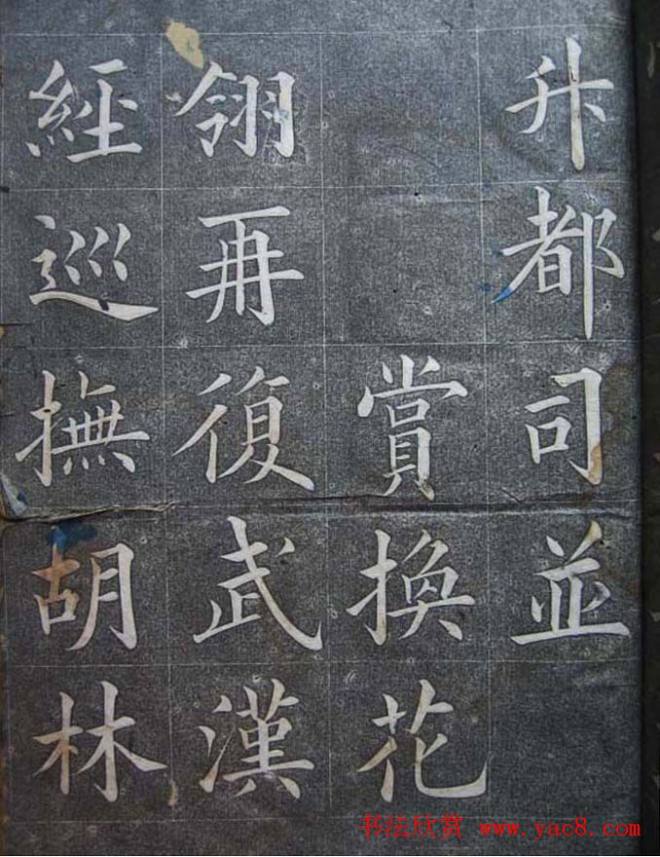 升都司並
賞換花
翎再復武漢
經巡撫胡林
书法欣赏 www.yac8.com